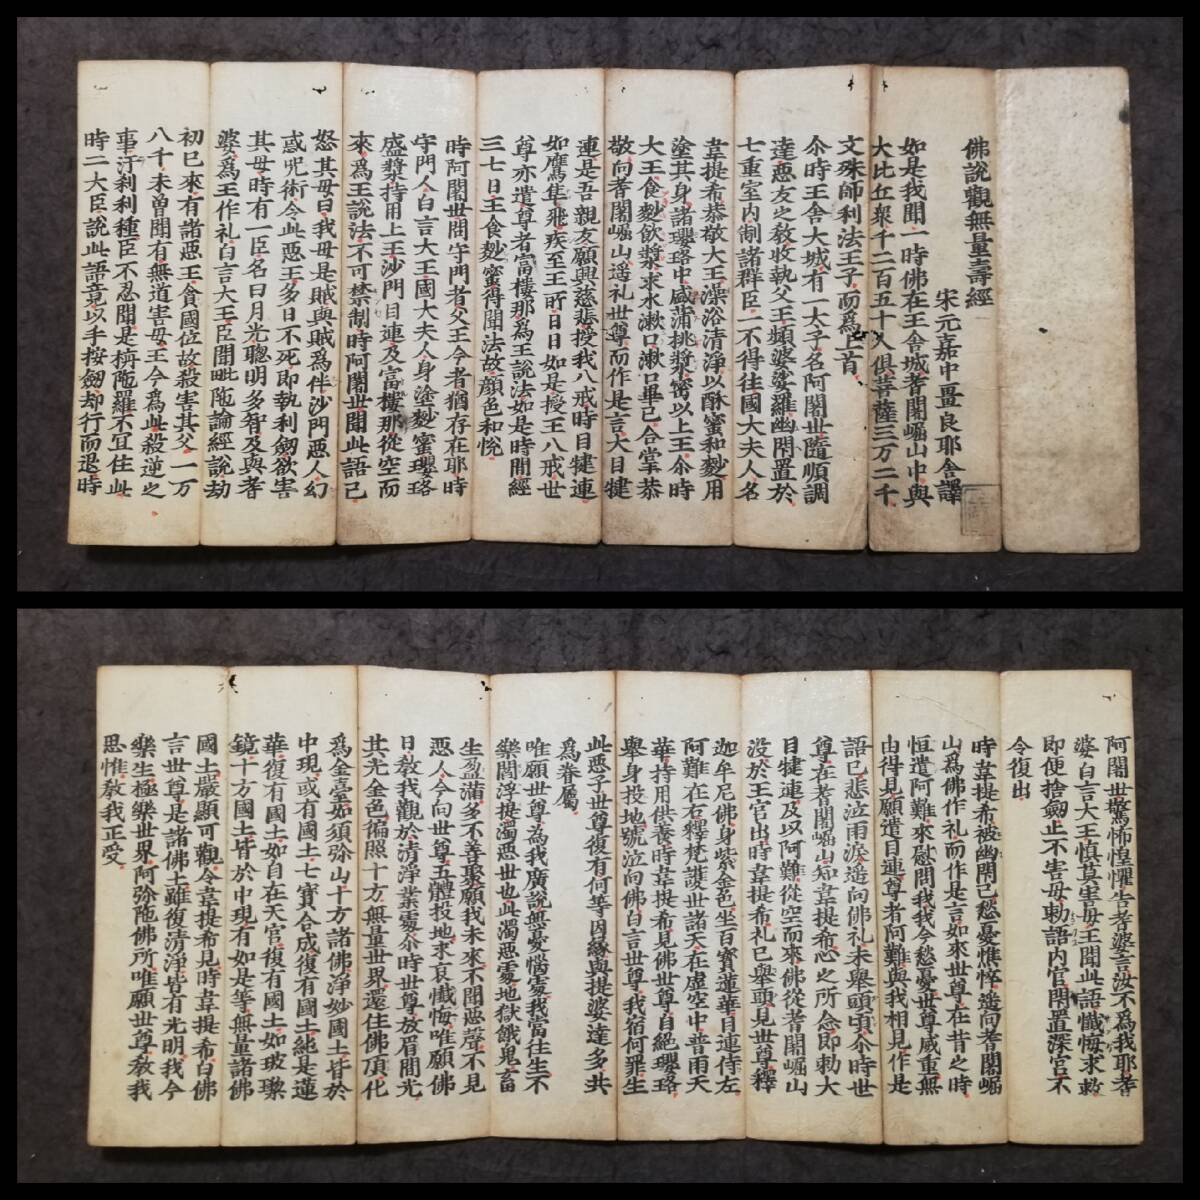 佛說觀無量壽經
宋元嘉中畺良耶舍譯
如是我聞一時佛在王舍城耆闍崛山中與
大比丘衆千二百五十人俱菩薩三万二千
文殊師利法王子而爲上首
尒時王舍大城有一太子名阿闍世隨順調
達惡友之教收執父王頻婆娑羅幽閇置於
七重室内制諸群臣一不得往國大夫人名
韋提希恭敬大王澡浴清淨以酥蜜和麨用
塗其身諸瓔珞中盛蒲桃漿密以上王尒時
大王食麨飲漿求水漱口漱口畢已合掌恭
敬向耆闍崛山遥礼世尊而作是言大目犍
連是吾親友願興慈悲授我八戒時目犍連
如鷹隼飛疾至王所日日如是授王八戒世
尊亦遣尊者富樓那爲王說法如是時間經
三七日王食麨蜜得聞法故顔色和悅
時阿闍世問守門者父王今者猶存在耶時
守門人白言大王國大夫人身塗麨蜜瓔珞
盛漿持用上王沙門目連及富樓那從空而
來爲王說法不可禁制時阿闍世聞此語已
怒其母曰我母是賊與賊爲伴沙門惡人幻
惑呪術令此惡王多日不死即執利劔欲害
其母時有一臣名曰月光聰明多智及與耆
婆爲王作礼白言大王臣聞毗陁論經說劫
初已來有諸惡王貪國位故殺害其父一万
八千未曾聞有無道害母王今爲此殺逆之
事汙刹利種臣不忍聞是栴陁羅不冝住此
時二大臣說此語竟以手按劔却行而退時
阿闍世驚怖惶懼告耆婆言汝不爲我耶耆
婆白言大王慎莫害母王聞此語懺悔求救
即便捨劔止不害母勅語内官閇置深宮不
令復出
時韋提希被幽閇已愁憂憔悴遥向耆闍崛
山爲佛作礼而作是言如來世尊在昔之時
恒遣阿難來慰問我我今愁憂世尊威重無
由得見願遣目連尊者阿難與我相見作是
語已悲泣雨淚遥向佛礼未舉頭頃尒時世
尊在耆闍崛山知韋提希心之所念即勅大
目犍連及以阿難從空而來佛從耆闍崛山
没於王宮出時韋提希礼已舉頭見世尊釋
迦牟尼佛身紫金色坐百寶蓮華目連侍左
阿難在右釋梵護世諸天在虛空中普雨天
華持用供養時韋提希見佛世尊自絕瓔珞
舉身投地號泣向佛白言世尊我宿何罪生
此惡子世尊復有何等因緣與提婆達多共
爲眷屬
唯願世尊為我廣說無憂惱處我當往生不
樂閻浮提濁惡世也此濁惡處地獄餓鬼畜
生盈滿多不善聚願我未來不聞惡聲不見
惡人今向世尊五體投地求哀懺悔唯願佛
日教我觀於清淨業處尒時世尊放眉間光
其光金色徧照十方無量世界還住佛頂化
爲金臺如須弥山十方諸佛淨妙國土皆於
中現或有國土七寶合成復有國土純是蓮
華復有國土如自在天宮復有國土如玻瓈
鏡十方國土皆於中現有如是等無量諸佛
國土嚴顯可觀令韋提希見時韋提希白佛
言世尊是諸佛土雖復清淨皆有光明我今
樂生極樂世界阿弥陁佛所唯願世尊教我
思惟教我正受